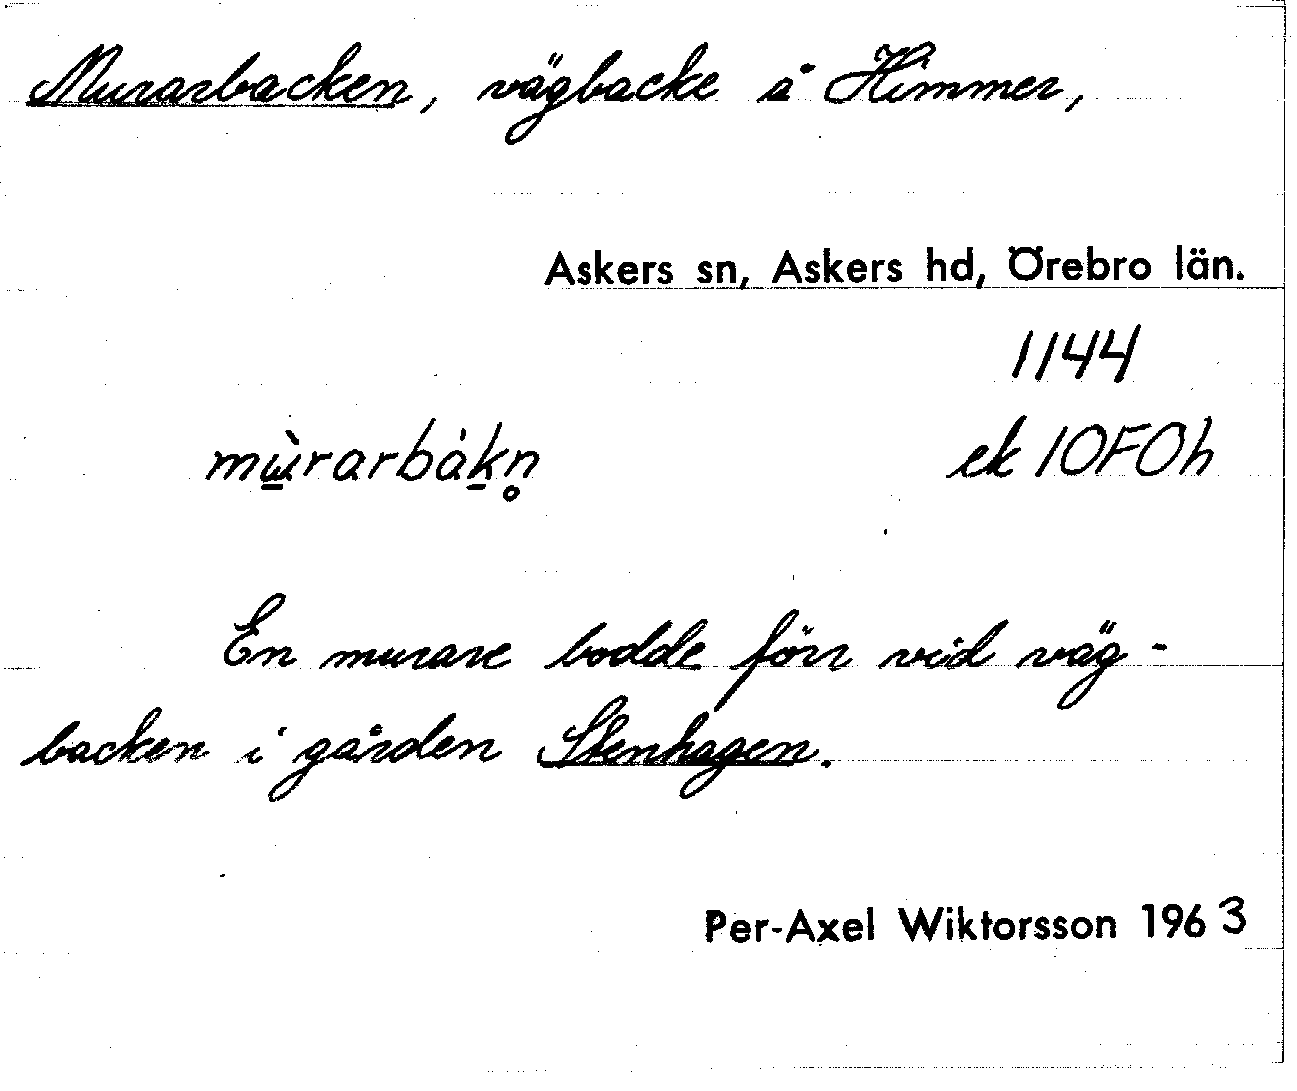 Murarbacken, vägbacke å Himmer,
Askers sn, Askers hd, Örebro län.
1144
mὼ̱rarbȧḵn̥ ek 10F0h
En murare bodde förr vid väg-
backen i gården Stenhagen.
Per-Axel Wiktorsson 1963